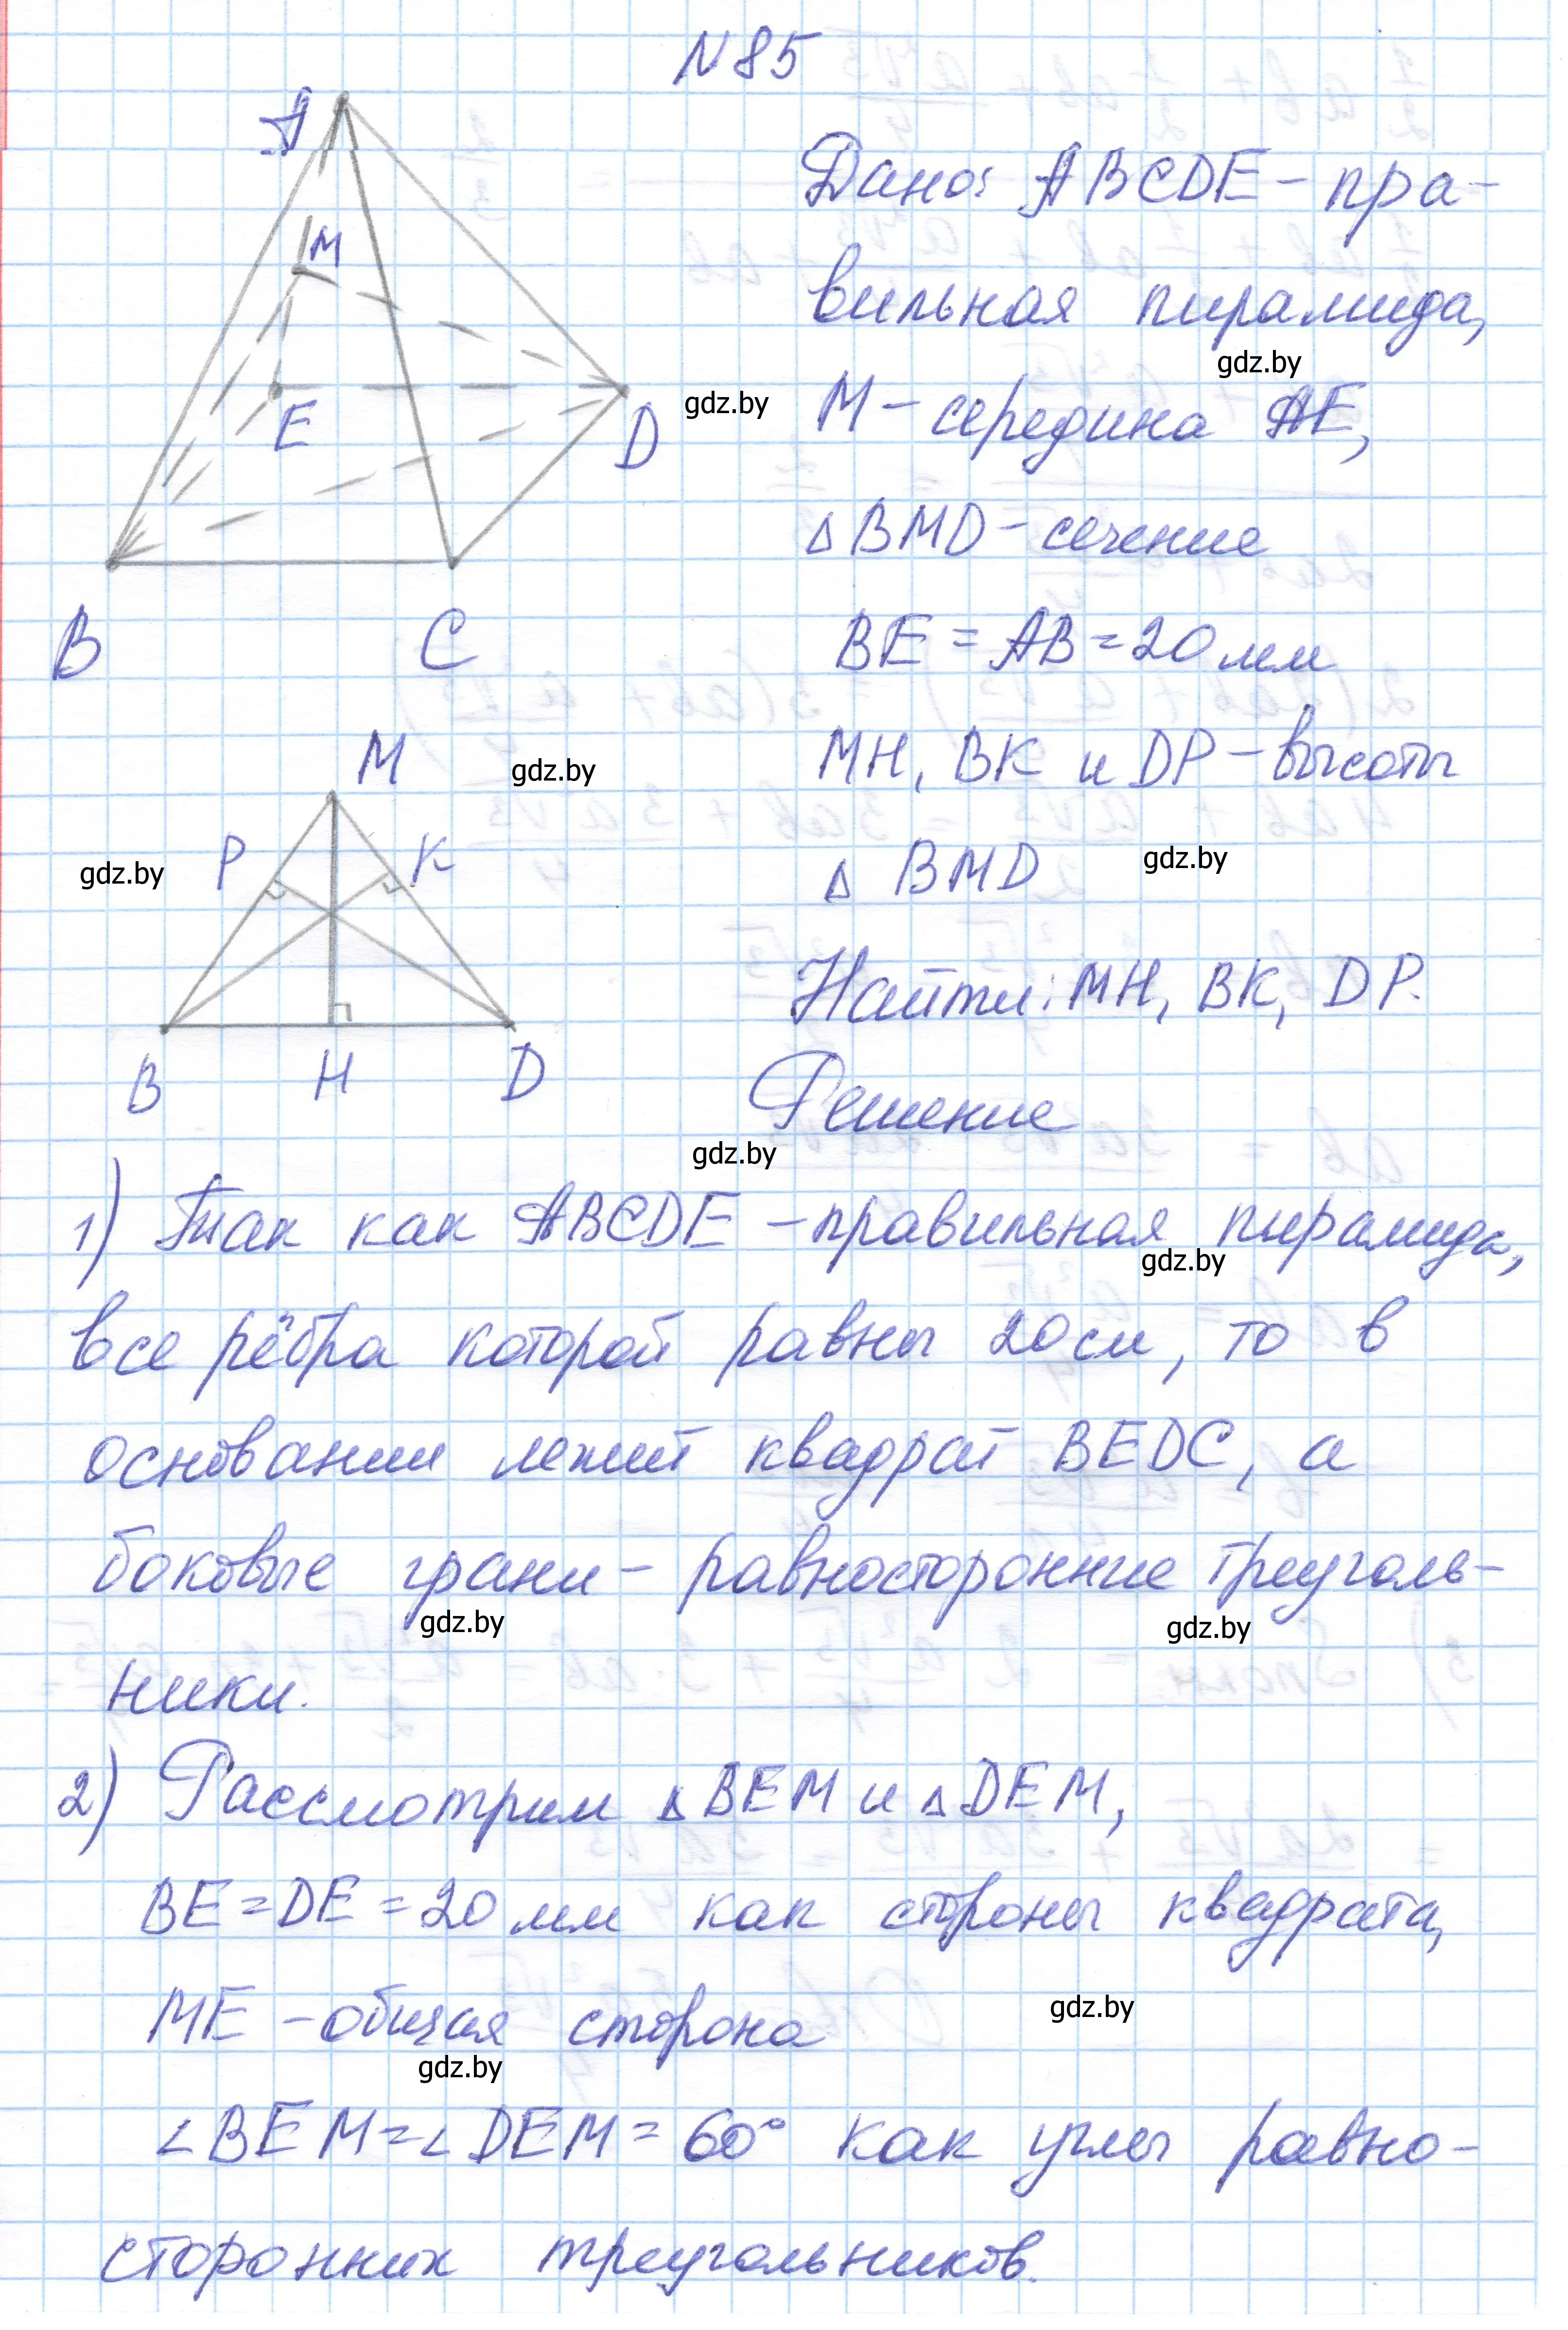 N 85
A
M
E
D
B
C
Дано: ABCDE – пра-
вильная пирамида,
M – середина AE,
△ BMD – сечение
BE = AB = 20 мм
MH, BK и DP – высоты
△ BMD
Найти: MH, BK, DP.
M
P
K
B
H
D
gdz.by
gdz.by
gdz.by
gdz.by
gdz.by
Решение
gdz.by
1) Так как ABCDE – правильная пирамида,
gdz.by
все рёбра которой равны 20 см, то в
основании лежит квадрат BEDC, а
боковые грани – равносторонние треуголь-
gdz.by
gdz.by
ники.
2) Рассмотрим △ BEM и △ DEM,
BE = DE = 20 мм как стороны квадрата,
ME – общая сторона
gdz.by
gdz.by
∠BEM = ∠DEM = 60° как углы равно-
сторонних треугольников.